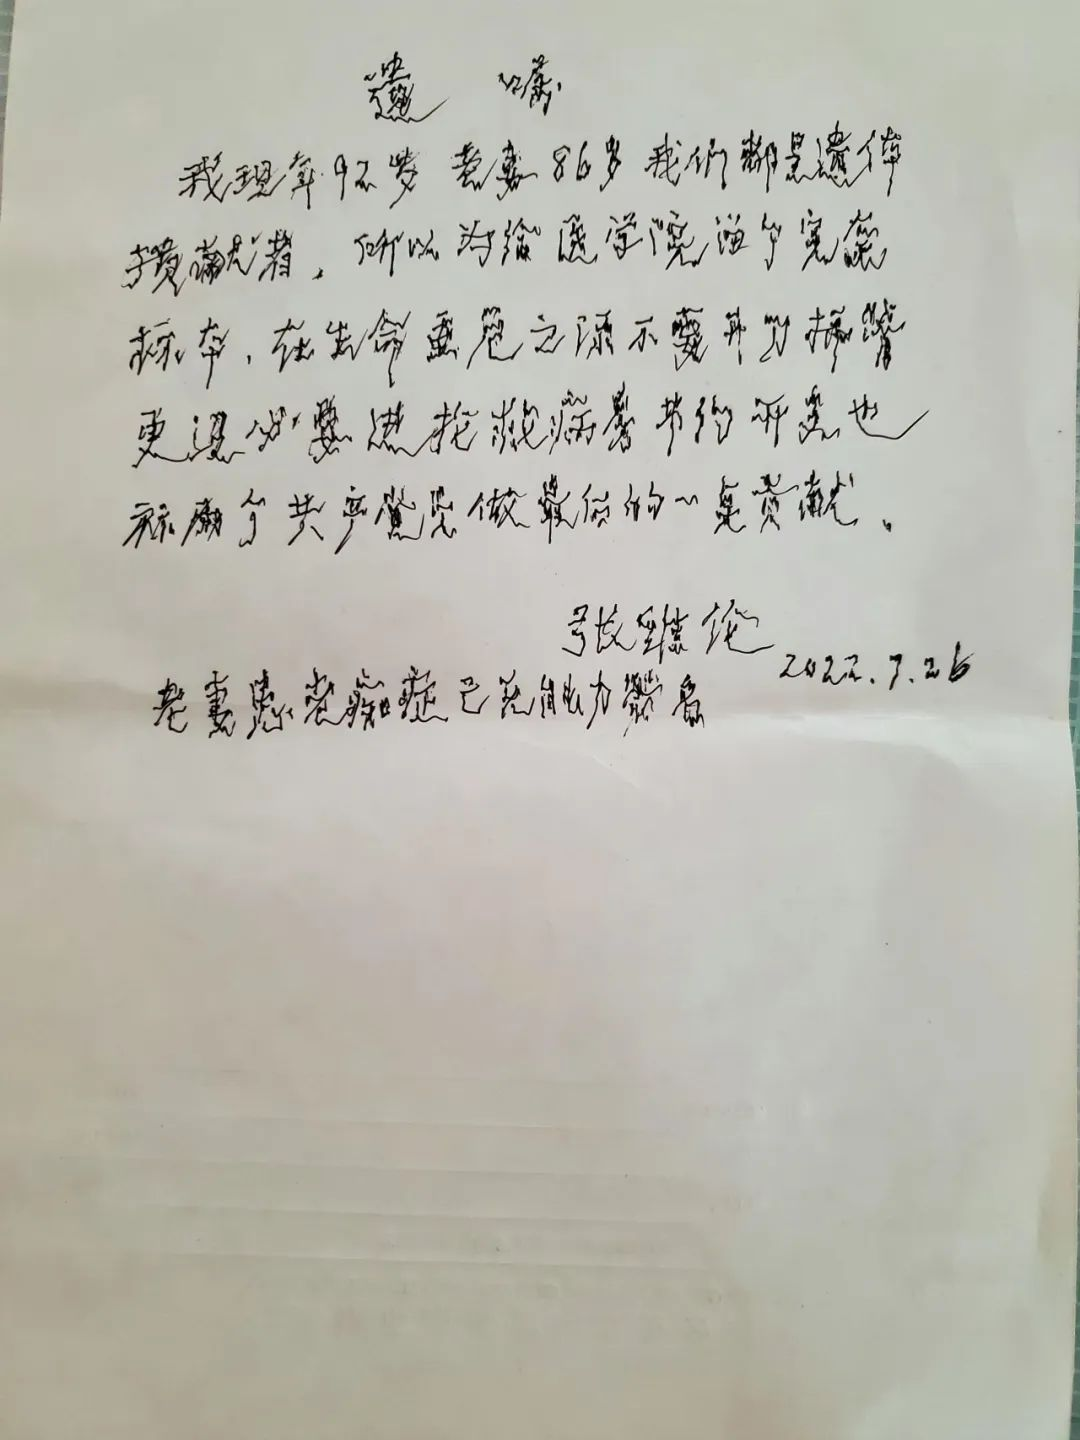 遗 嘱
我现年92岁 老妻86岁 我们都是遗体
捐献者，所以为给医学院留个完整
标本，在生命垂危之际不要开刀插管
更没必要进抢救病房节约开支也
算两个共产党员做最后的一点贡献。
张维伦
2022.7.26
老妻患老痴症已无能力签名